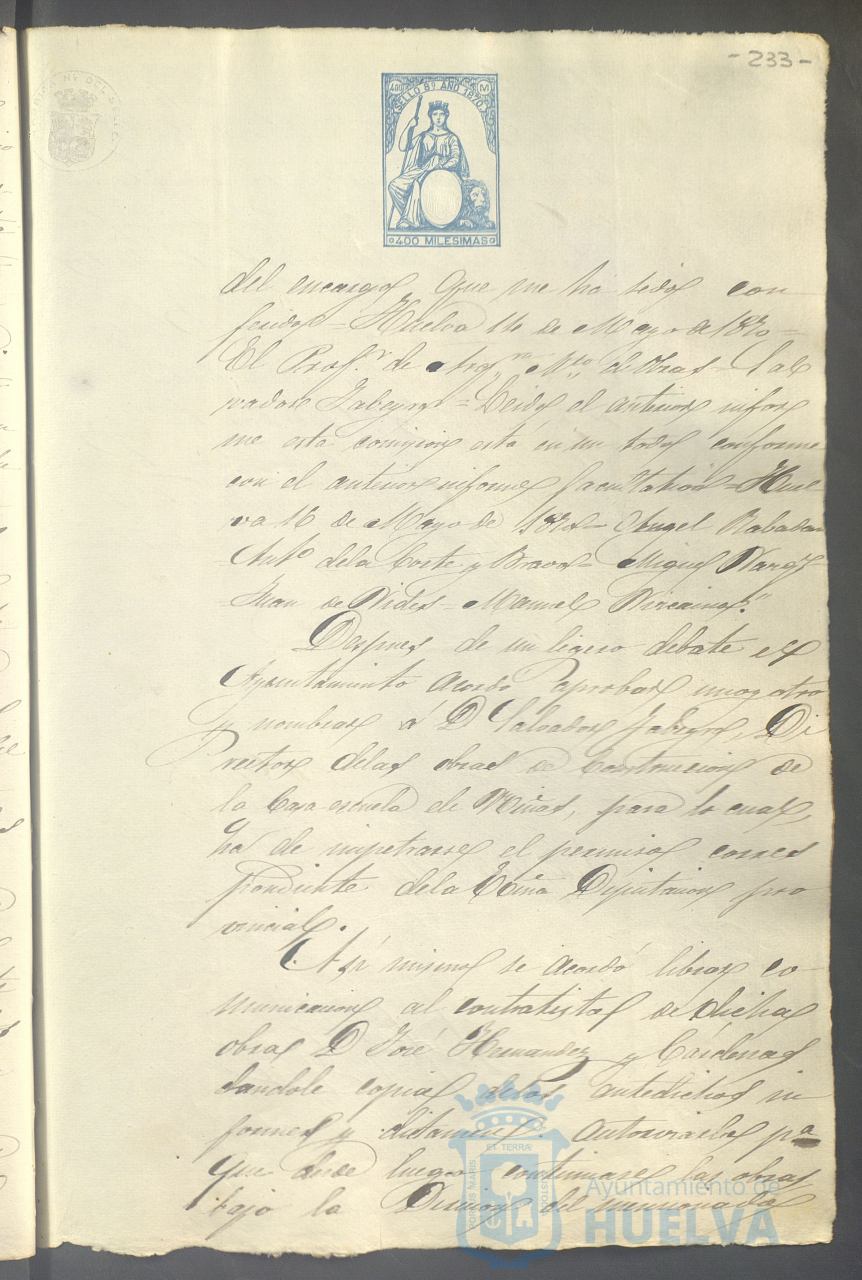 - 233 -
400 M
SELLO 8º AÑO 1870
400 MILESIMAS
del encargo que me ha sido con
ferido = Huelva 16 de Mayo de 1870 =
El Prof.r de Arq.ra Mtro de Obras = Sal
vador = Leido el anterior infor
me esta comision está en un todo conforme
con el anterior informe facultativo = Huel
va 16 de Mayo de 1870 = Angel Rabadan
= Antº de la Corte y Bravo = Miguel
= Juan de = Manuel Vizcaino."
Despues de un ligero debate el
Ayuntamiento acordó aprobar uno y otro
y nombrar á D Salvador Di
rector delas obras de Construcion de
la Casa escuela de Niñas, para lo cual,
ha de impetrarse el permiso corres
pondiente dela Exma Diputacion pro
vincial.
Asi mismo se acordó librar co
municacion al contratista de dicha
obra D José Hernandez y Cárdenas
dandole copia delos antedichos in
formes y dictamen pa
que desde luego continuase las obras
bajo la Direccion del mencionado
ET TERRA
Ayuntamiento de
HUELVA